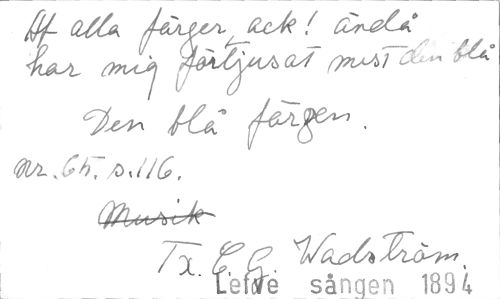 Af alla färger, ack! ändå
har mig förtjusat mest den blå
Den blå färgen.
nr. 65. s. 116.
Musik
Tx. C. G. Wadström.
Lefve sången 1894